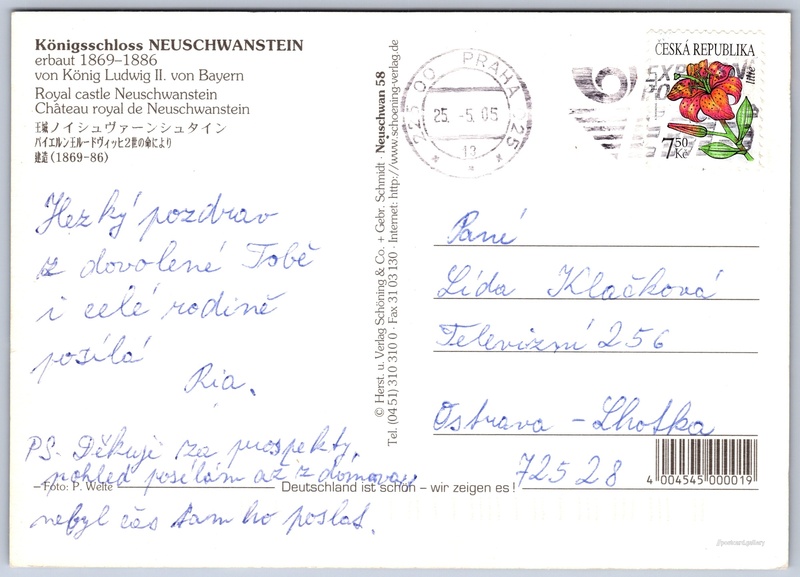 Königsschloss NEUSCHWANSTEIN
erbaut 1869–1886
von König Ludwig II. von Bayern
Royal castle Neuschwanstein
Château royal de Neuschwanstein
王城ノイシュヴァーンシュタイン
バイエルン王ルードヴィッヒ2世の命により
建造(1869-86)
Hezký pozdrav
z dovolené Tobě
i celé rodině
posílá
Ria.
PS. Děkuji za prospekty,
pohled posílám až z domova,
nebyl čas tam ho poslat.
Foto: P. Welte
Deutschland ist schön – wir zeigen es!
© Herst. u. Verlag Schöning & Co. + Gebr. Schmidt · Neuschwan 58
Tel. (04 51) 310 310 0 · Fax 31 03 130 · Internet: http://www.schoening-verlag.de
225 00 PRAHA 025
25. -5. 05
13
ČESKÁ REPUBLIKA
750
Kč
Paní
Lída Klačková
Televizní 256
Ostrava - Lhotka
72528
4 004545 000019